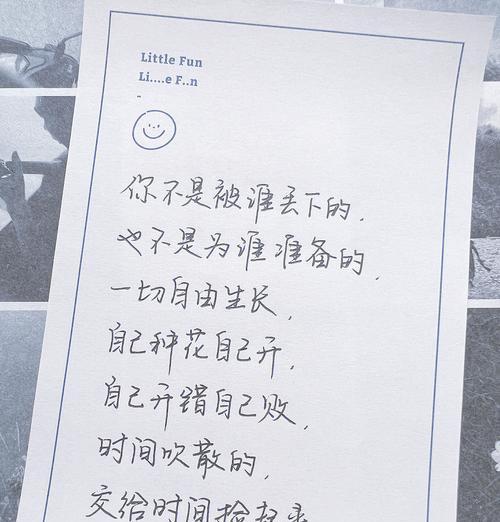 Little Fun
Li....e F..n
-
你不是被谁丢下的，
也不是为谁准备的，
一切自由生长，
自己种花自己开，
自己开错自己败，
时间吹散的，
交给时间捡起来